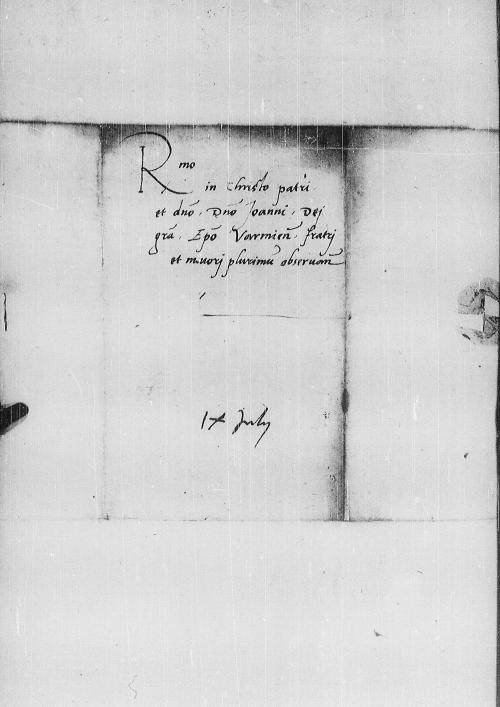 Rmo
in Christo patri
et dnō. Dnō Joanni. Dei
grā. Epō Varmień. fratri
et maiori plurimū observań
1
17 July